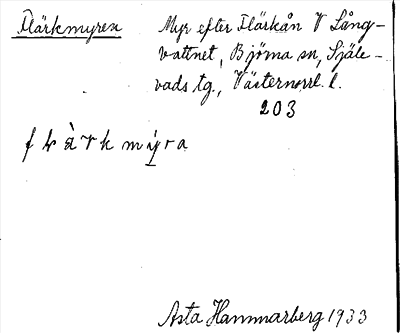 Flärkmyren
Myr efter Flärkån V Lång-
vattnet, Björna sn, Själe-
vads tg., Västernorrl. l.
203
Asta Hammarberg 1933